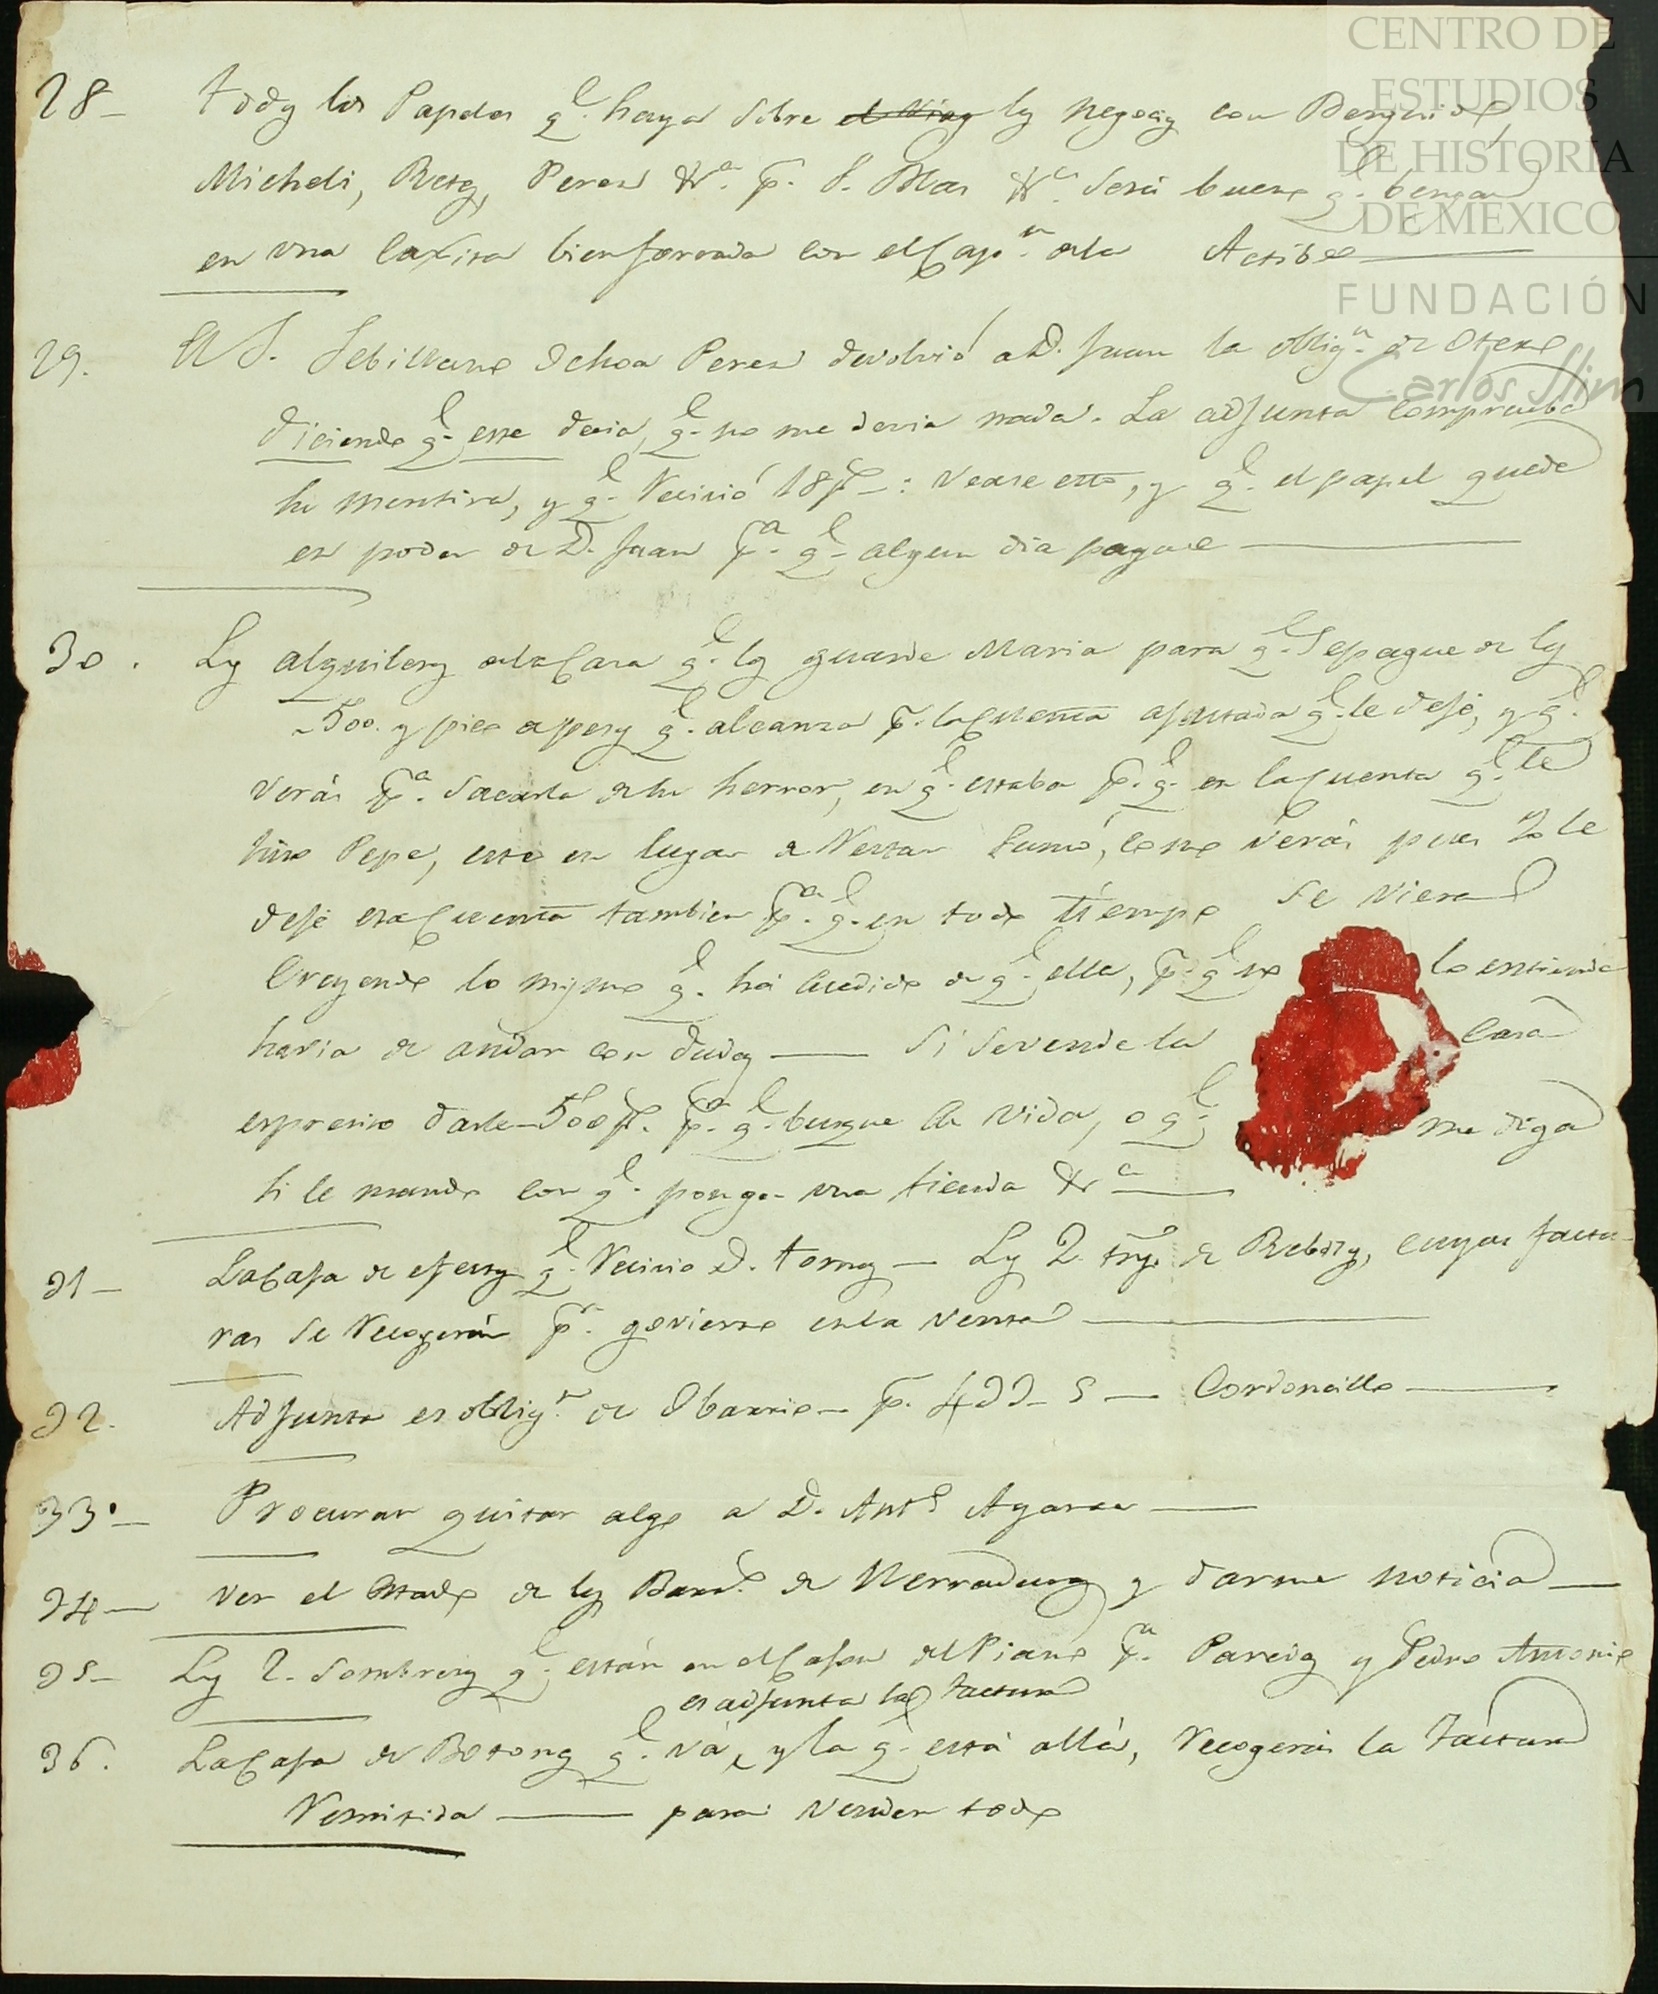 CENTRO DE
ESTUDIOS
DE HISTORIA
DE MÉXICO
FUNDACIÓN
Carlos Slim
28- todos los Papeles q.e haya sobre los negocios con
Micheli, Perez &.a p. S. Blas &.a será bueno q.e bengan
en una caxita bien forrada con el Cap.n dela Actibo
29. El S. Sebillano Ochoa Perez devolvió a D. Juan la oblig.n de Otero
diciendo q.e esse devia, q.e no me devia nada. La adjunta comprueba
su mentira, y q.e Recivió 18p.s: Vease esto, y q.e el papel quede
en poder de D. Juan p.a q.e algun dia pague
30. Los alquileres dela Casa q.e los guarde Maria para q.e Se pague de los
500. y pico apesos q.e alcanza p.r la Cuenta ajustada q.e le dejé, y q.e
verás p.a Sacarla de su herror, en q.e estaba p.r q.e en la Cuenta q.e le
hizo Pepe, este en lugar de Restar Sumó, como verás pues Yo le
dejé esa Cuenta tambien p.a q.e en todo tiempo se viera
Creyendo lo mismo q.e há sucedido de q.e ella, p.r q.e no lo entiende
havia de andar con dudas — Si Se vende la Casa
espresiso darle 500p.s p.a q.e busque su vida, o q.e me diga
si le mando con q.e ponga una tienda &.a
31- La Caja de efectos q.e Recivio D. Tomas — Los 2. de Rebozos, cuyas factu-
ras Se Recogerán p.a govierno enla venta
32. Adjunta es oblig.n de Obarrio p. 433-5 — Cordoncillo
33.- Procurar quitar algo a D. Ant.o
34- Ver el Estado de los Barr.s de Herraduras y darme noticia
35- Los 2. Sombreros q.e están en el Cajon del Piano p.a Paredes y Pedro Antonio
es adjunta la factura
36. La Caja de Botones q.e vá, y la q.e está allá, Recogerás la factura
Remitida — para Vender todo